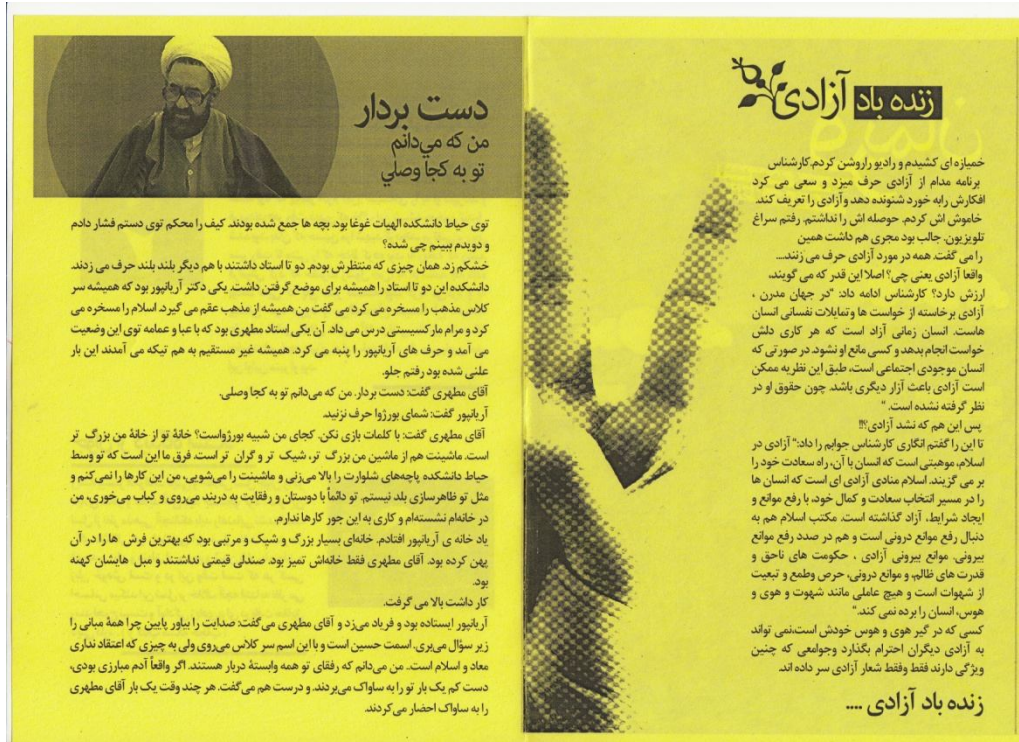 زنده باد آزادی
خمیازه ای کشیدم و رادیو راروشن کردم.کارشناس
برنامه مدام از آزادی حرف میزد و سعی می کرد
افکارش رابه خورد شنونده دهد وآزادی را تعریف کند.
خاموش اش کردم. حوصله اش را نداشتم. رفتم سراغ
تلویزیون. جالب بود مجری هم داشت همین
را می گفت. همه در مورد آزادی حرف می زنند....
واقعا آزادی یعنی چی؟ اصلا این قدر که می گویند،
ارزش دارد؟ کارشناس ادامه داد: "در جهان مدرن ،
آزادی برخاسته از خواست ها وتمایلات نفسانی انسان
هاست. انسان زمانی آزاد است که هر کاری دلش
خواست انجام بدهد و کسی مانع او نشود. در صورتی که
انسان موجودی اجتماعی است، طبق این نظریه ممکن
است آزادی باعث آزار دیگری باشد. چون حقوق او در
نظر گرفته نشده است. "
پس این هم که نشد آزادی؟!!
تا این را گفتم انگاری کارشناس جوابم را داد:" آزادی در
اسلام، موهبتی است که انسان با آن، راه سعادت خود را
بر می گزیند. اسلام منادی آزادی ای است که انسان ها
را در مسیر انتخاب سعادت و کمال خود، با رفع موانع و
ایجاد شرایط، آزاد گذاشته است. مکتب اسلام هم به
دنبال رفع موانع درونی است و هم در صدد رفع موانع
بیرونی. موانع بیرونی آزادی ، حکومت های ناحق و
قدرت های ظالم، و موانع درونی، حرص وطمع و تبعیت
از شهوات است و هیچ عاملی مانند شهوت و هوی و
هوس، انسان را برده نمی کند."
کسی که در گیر هوی و هوس خودش است،نمی تواند
به آزادی دیگران احترام بگذارد وجوامعی که چنین
ویژگی دارند فقط وفقط شعار آزادی سر داده اند.
زنده باد آزادی ....
دست بردار
من که می‌دانم
تو به کجا وصلي
توی حیاط دانشکده الهیات غوغا بود. بچه ها جمع شده بودند. کیف را محکم توی دستم فشار دادم
و دویدم ببینم چی شده؟
خشکم زد. همان چیزی که منتظرش بودم. دو تا استاد داشتند با هم دیگر بلند بلند حرف می زدند.
دانشکده این دو تا استاد را همیشه برای موضع گرفتن داشت. یکی دکتر آریانپور بود که همیشه سر
کلاس مذهب را مسخره می کرد می گفت من همیشه از مذهب عقم می گیرد. اسلام را مسخره می
کرد و مرام مارکسیستی درس می داد. آن یکی استاد مطهری بود که با عبا و عمامه توی این وضعیت
می آمد و حرف های آریانپور را پنبه می کرد. همیشه غیر مستقیم به هم تیکه می آمدند این بار
علنی شده بود رفتم جلو.
آقای مطهری گفت: دست بردار. من که می‌دانم تو به کجا وصلی.
آریانپور گفت: شمای بورژوا حرف نزنید.
آقای مطهری گفت: با کلمات بازی نکن. کجای من شبیه بورژواست؟ خانهٔ تو از خانهٔ من بزرگ تر
است. ماشینت هم از ماشین من بزرگ تر، شیک تر و گران تر است. فرق ما این است که تو وسط
حیاط دانشکده پاچه‌های شلوارت را بالا می‌زنی و ماشینت را می‌شویی، من این کارها را نمی‌کنم و
مثل تو ظاهرسازی بلد نیستم. تو دائماً با دوستان و رفقایت به دربند می‌روی و کباب می‌خوری، من
در خانه‌ام نشسته‌ام و کاری به این جور کارها ندارم.
یاد خانه ی آریانپور افتادم. خانه‌ای بسیار بزرگ و شیک و مرتبی بود که بهترین فرش ها را در آن
پهن کرده بود. آقای مطهری فقط خانه‌اش تمیز بود. صندلی قیمتی نداشتند و مبل هایشان کهنه
بود.
کار داشت بالا می گرفت.
آریانپور ایستاده بود و فریاد می‌زد و آقای مطهری می‌گفت: صدایت را بیاور پایین چرا همهٔ مبانی را
زیر سؤال می‌بری. اسمت حسین است و با این اسم سر کلاس می‌روی ولی به چیزی که اعتقاد نداری
معاد و اسلام است.. من می‌دانم که رفقای تو همه وابستهٔ دربار هستند. اگر واقعاً آدم مبارزی بودی،
دست کم یک بار تو را به ساواک می‌بردند. و درست هم می‌گفت. هر چند وقت یک بار آقای مطهری
را به ساواک احضار می کردند.